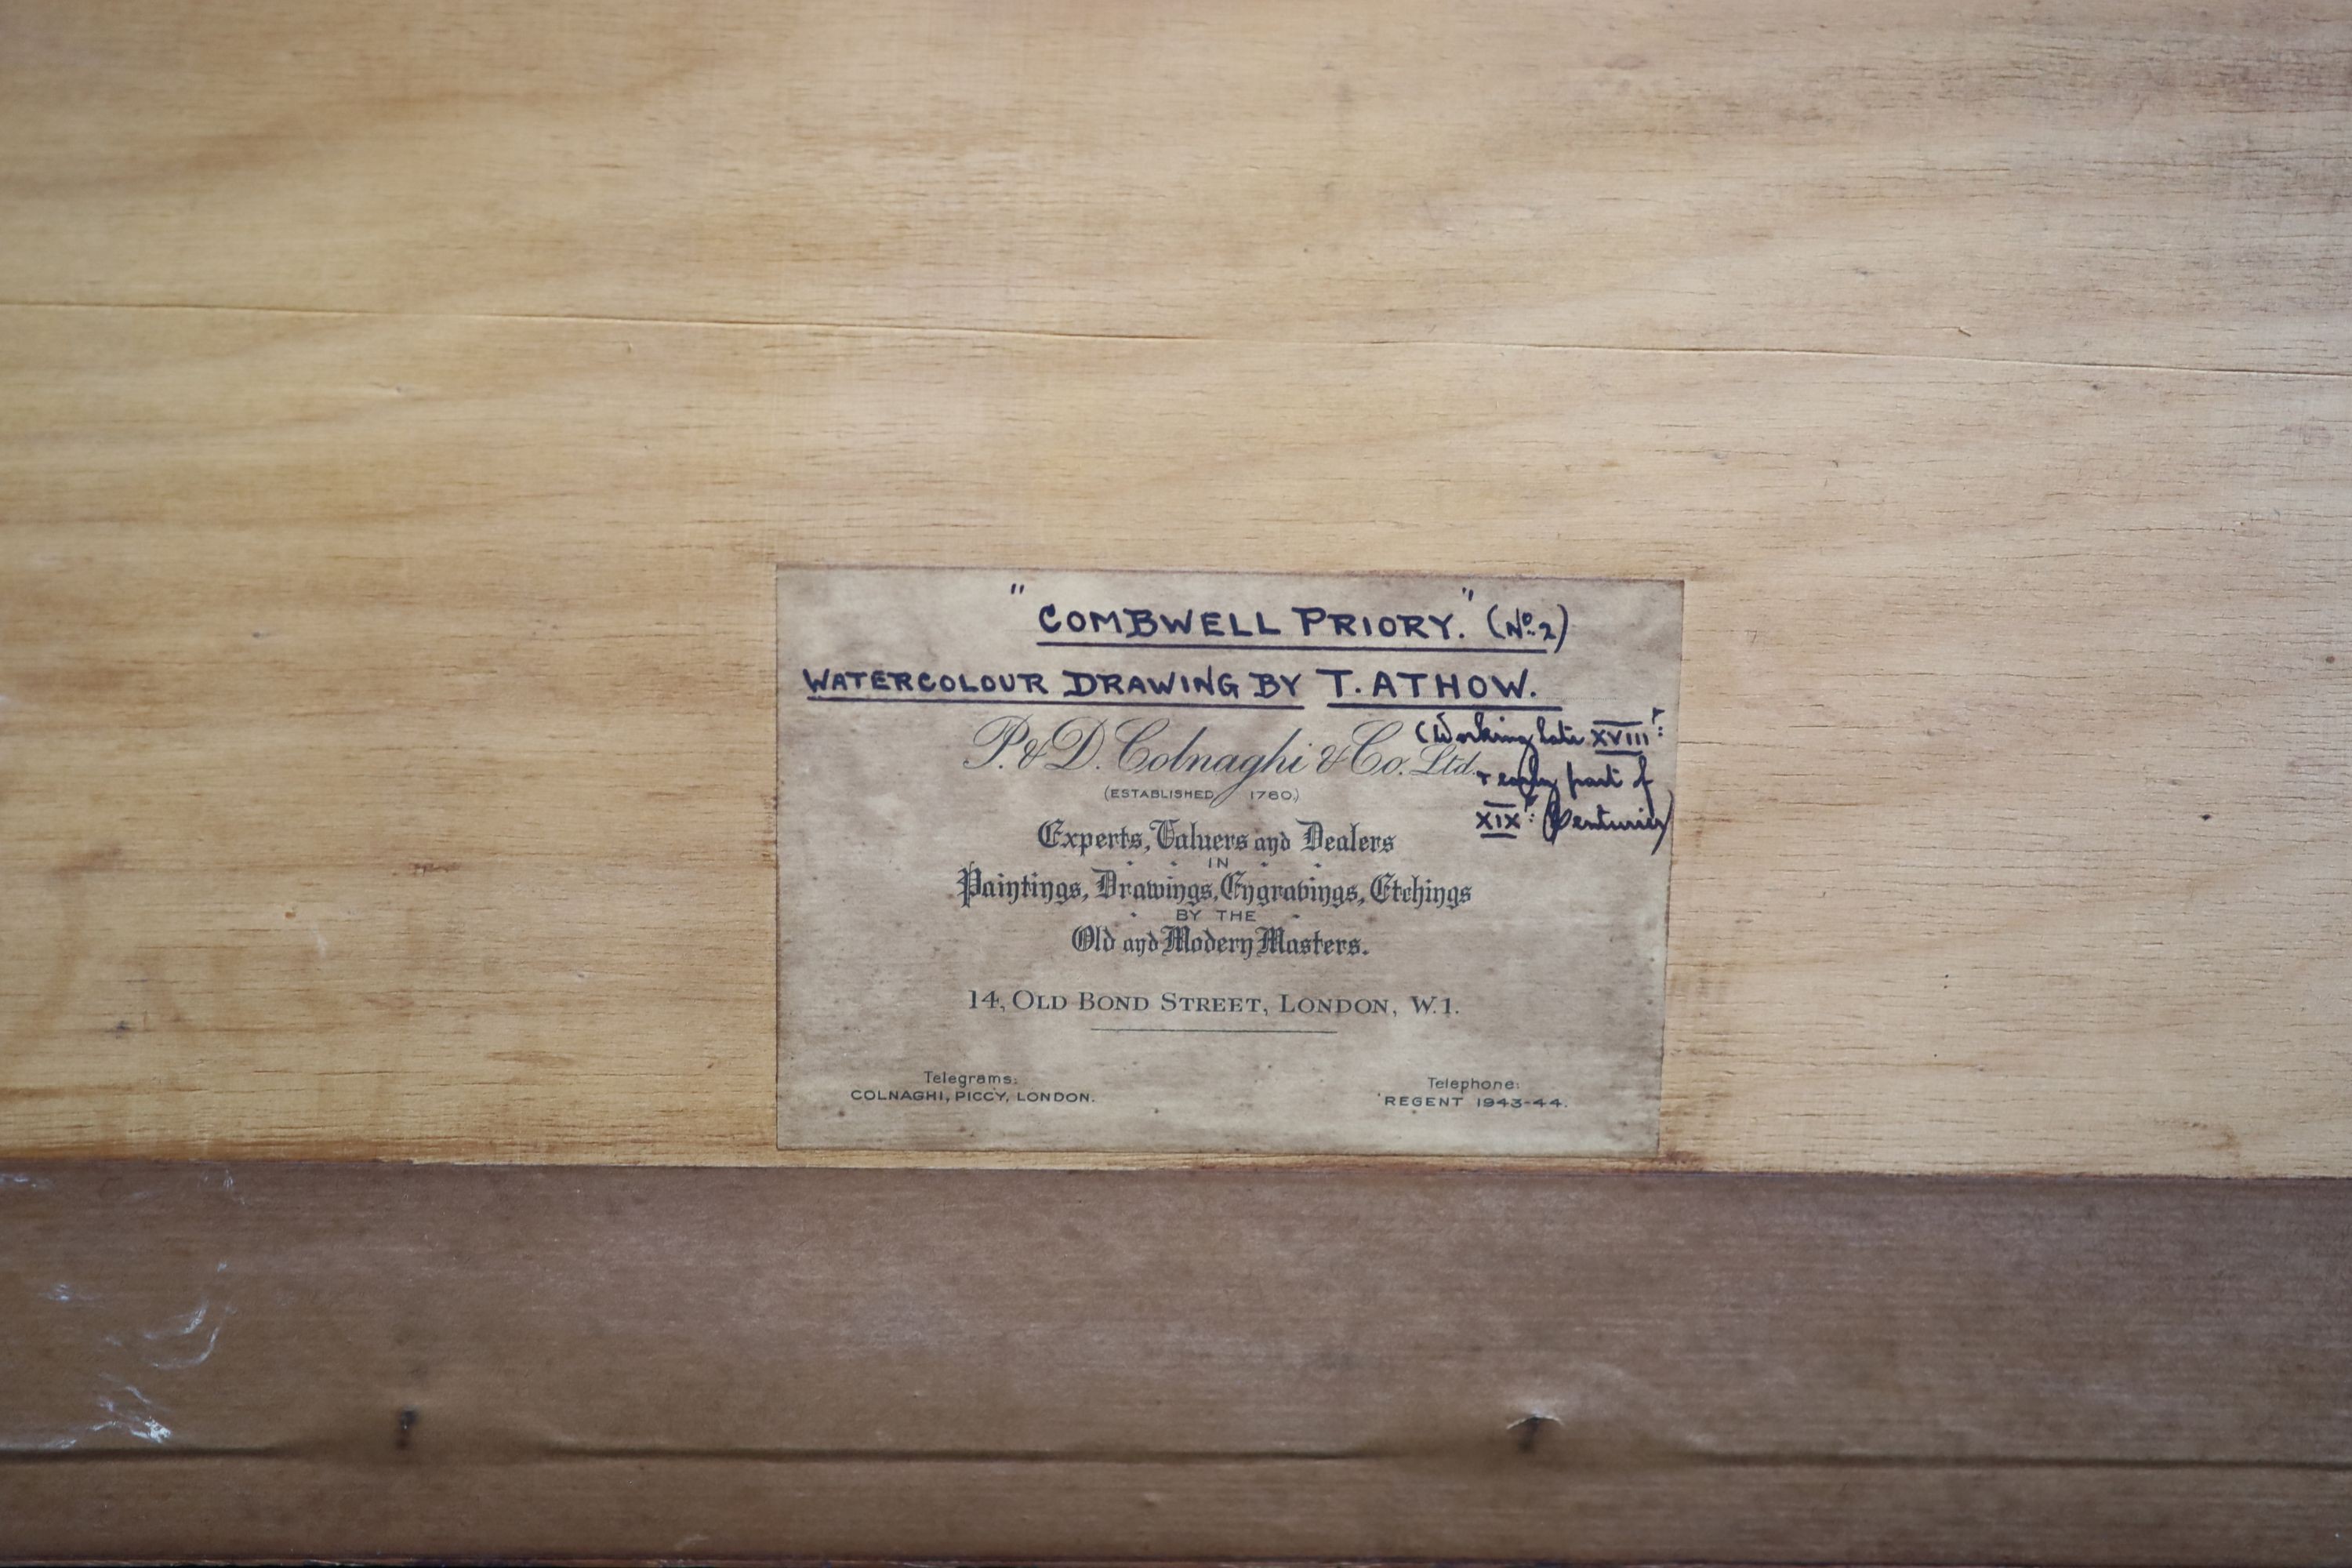 "COMBWELL PRIORY." (No. 2)
WATERCOLOUR DRAWING BY T. ATHOW.
(Working late XVIII
& early part of
XIX Centuries)
P. & D. Colnaghi & Co. Ltd.
(ESTABLISHED 1760.)
Experts, Valuers and Dealers
IN
Paintings, Drawings, Engravings, Etchings
BY THE
Old and Modern Masters.
14, OLD BOND STREET, LONDON, W.1.
Telegrams:
COLNAGHI, PICCY, LONDON.
Telephone:
REGENT 1943-44.